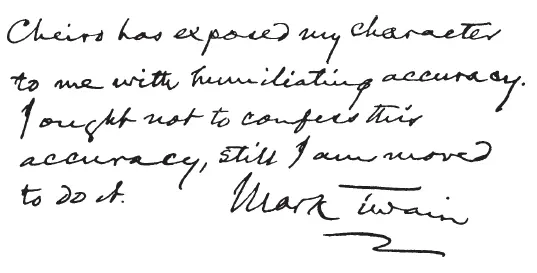 Cheiro has exposed my character
to me with humiliating accuracy.
I ought not to confess this
accuracy, still I am moved
to do it. Mark Twain